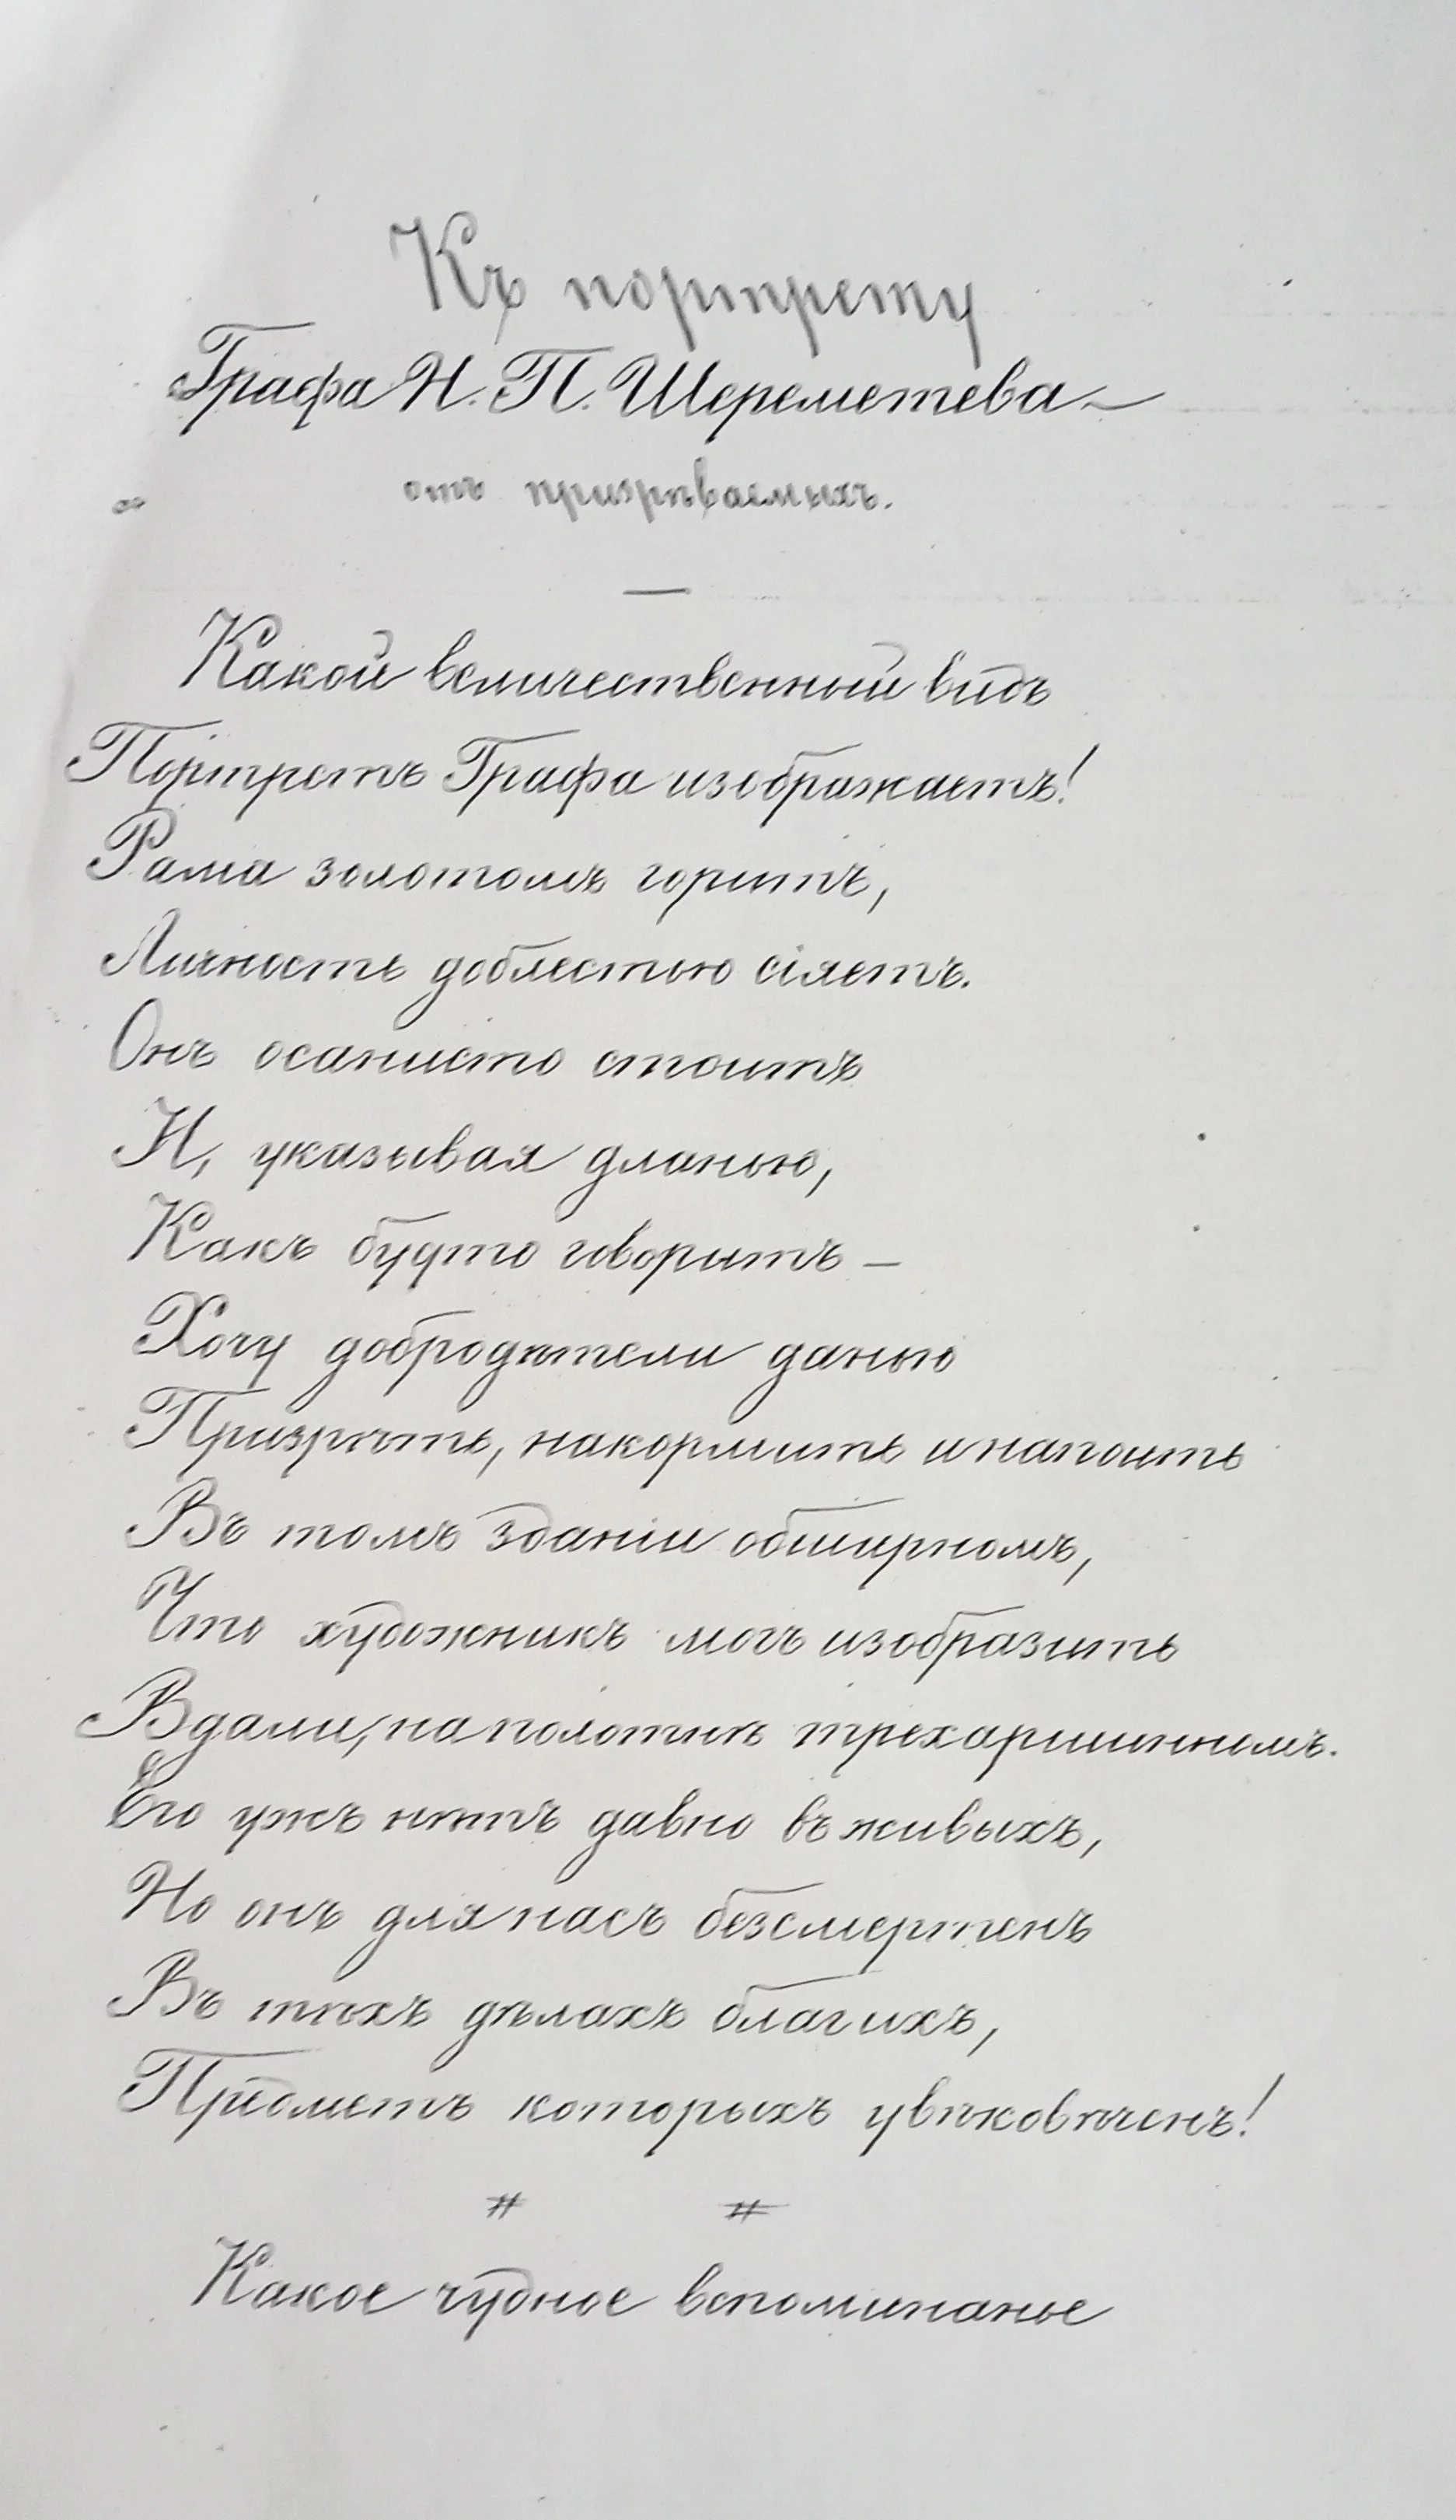 Къ портрету
Графа Н. П. Шереметева
отъ призрѣваемыхъ.
Какой величественный видъ
Портретъ Графа изображаетъ!
Рама золотомъ горитъ,
Личность доблестью сіяетъ.
Онъ осанисто стоитъ
И, указывая дланью,
Какъ будто говоритъ –
Хочу добродѣтели данью
Призрѣть, накормить и напоить
Въ томъ зданіи обширномъ,
Что художникъ могъ изобразить
Вдали, на полотнѣ трехаршинномъ.
Его ужъ нѣтъ давно въ живыхъ,
Но онъ для насъ безсмертенъ
Въ тѣхъ дѣлахъ благихъ,
Предметъ которыхъ увѣковѣченъ!
# #
Какое чудное вспоминанье